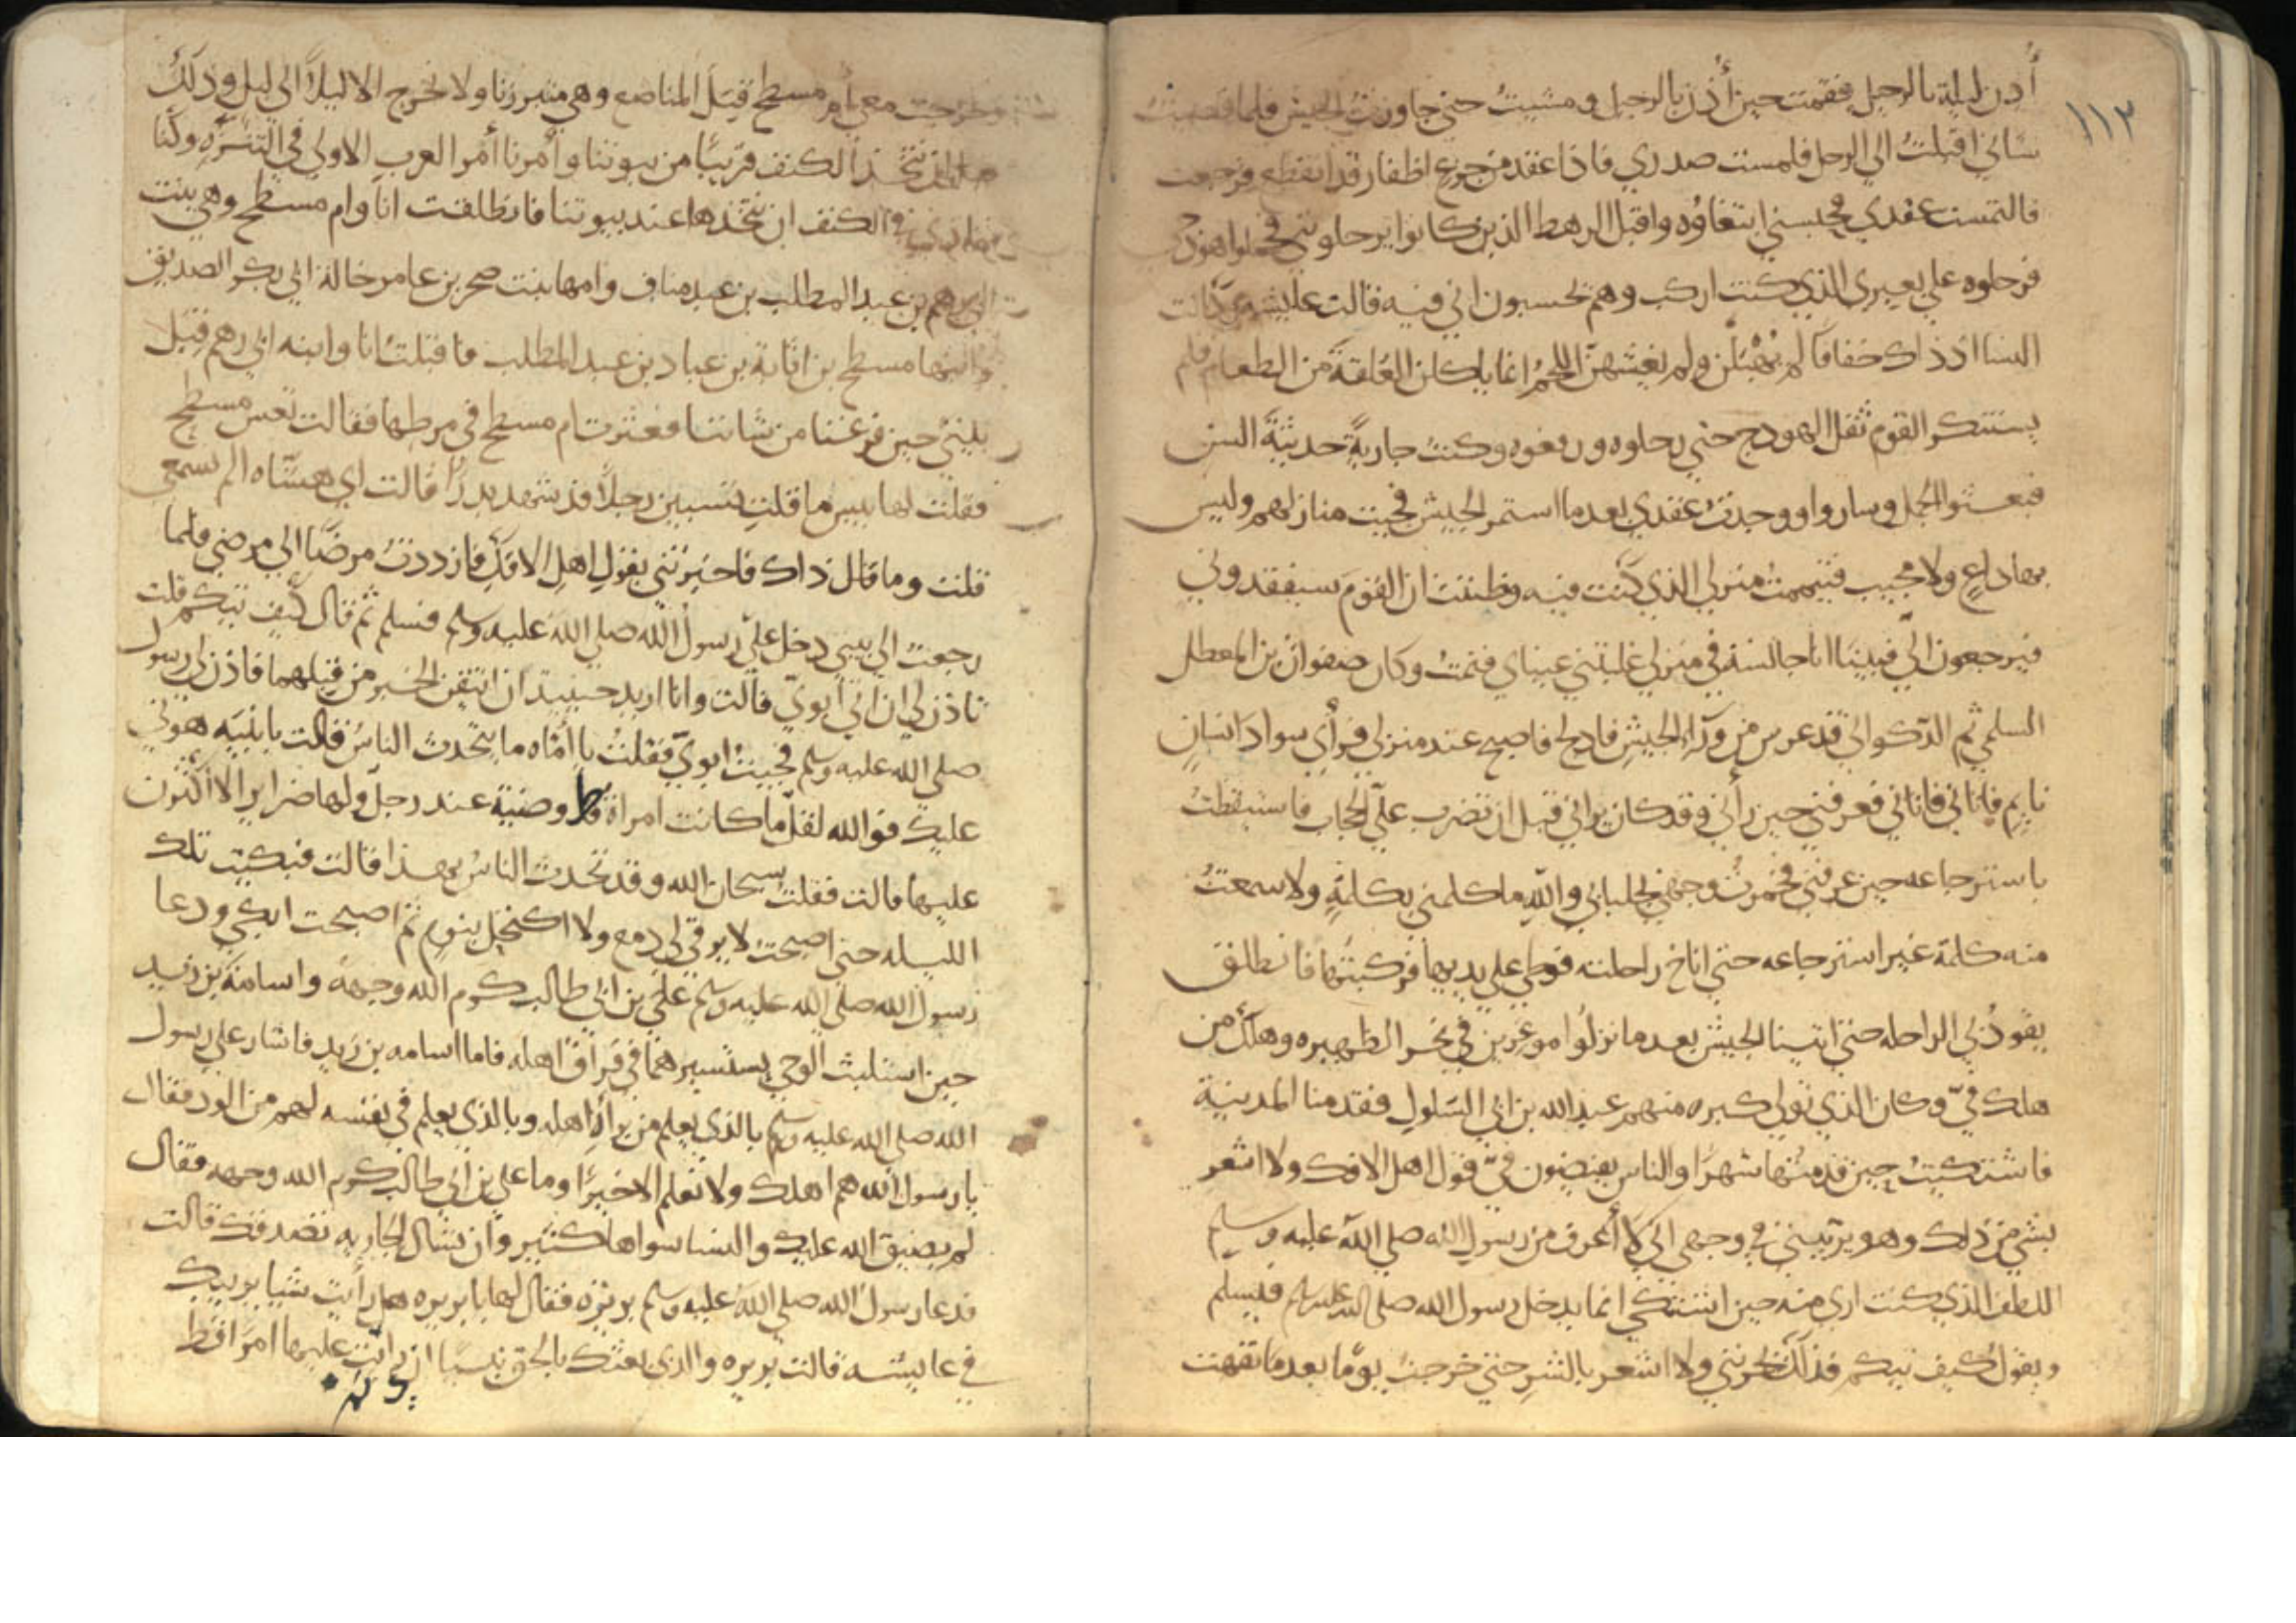 ١١٢
أذن ليلة بالرحيل فقمت حين أذن بالرحيل ومشيت حتي جاوزت الجيش فلما قضيت
شاني اقبلت الي الرحل فلمست صدري فاذا عقد من جزع اظفار قد انقطع فرجعت
فالتمست عقدي فحبسني ابتغاؤه واقبل الرهط الذين كانوا يرحلو بي فحملوا هودجي
فرحلوه علي بعيري الذي كنت اركب وهم يحسبون اني فيه قالت عايشه وكانت
النسا اذ ذاك خفافا لم يهبلن ولم يغشهن اللحم انما ياكلن العلقة من الطعام فلم
يستنكر القوم ثقل الهودج حتي رحلوه ورفعوه وكنت جارية حديثة السن
فبعثوا الجمل وساروا ووجدت عقدي بعد ما استمر الجيش فجيت منازلهم وليس
بها داع ولا مجيب فتيممت منزلي الذي كنت فيه وظننت ان القوم سيفقدوني
فيرجعون الي فبينا انا جالسة في منزلي غلبتني عيناي فنمت وكان صفوان بن المعطل
السلمي ثم الذكواني قد عرس من ورآء الجيش فادلج فاصبح عند منزلي فرأي سواد انسان
نايم فاتاني فاتاني فعرفني حين رأني وقد كان يراني قبل ان تضرب علي الحجاب فاستيقظت
باسترجاعه حين عرفني فخمرت وجهي بجلبابي والله ما كلمني بكلمة ولا سمعت
منه كلمة غير استرجاعه حتي اناخ راحلته فوطي علي يديها فركبتها فانطلق
يقود بي الراحله حتي اتينا الجيش بعد ما نزلوا موغرين في نحر الظهيره وهلك من
هلك في وكان الذي تولي كبره منهم عبد الله بن ابي السلول فقدمنا المدينة
فاشتكيت حين قدمتها شهرا والناس يفيضون في قول اهل الافك ولا اشعر
بشي من ذلك وهو يريبني في وجهي اني لا أعرف من رسول الله صلي الله عليه وسلم
اللطف الذي كنت اري منه حين اشتكي انما يدخل رسول الله صلي الله عليه وسلم فيسلم
ويقول كيف تيكم فذلك يحزنني ولا اشعر بالشر حتي خرجت يوما بعد ما نقهت
وخرجت معي أم مسطح قبل المناصع وهي متبرزنا ولا نخرج الا ليلا الي ليل وذلك
نتخذ الكنف قريبا من بيوتنا وأمرنا أمر العرب الاولي في التنزه وكنا
الكنف ان نتخذها عند بيوتنا فانطلقت انا وام مسطح وهي بنت
ابي رهم بن عبد المطلب بن عبد مناف وامها بنت صخر بن عامر خالة ابي بكر الصديق
وابنها مسطح بن اثاثة بن عباد بن عبد المطلب فاقبلت انا وابنه ابي رهم قبل
بيتي حين فرغنا من شاننا فعثرت ام مسطح في مرطها فقالت تعس مسطح
فقلت لها بيس ما قلت تسبين رجلا قد شهد بدرا قالت اي هنتاه الم تسمعي
قلت وما قال ذاك فاخبرتني بقول اهل الافك فازددت مرضا الي مرضي فلما
رجعت الي بيتي دخل علي رسول الله صلي الله عليه وسلم فسلم ثم قال كيف تيكم قلت
تاذن لي ان اتي أبوي قالت وانا اريد حينيذ ان اتيقن الخبر من قبلهما فاذن لي رسول
صلي الله عليه وسلم فجيت ابوي فقلت يا أماه ما يتحدث الناس فقالت يا بنيه هوني
عليك فوالله لقل ما كانت امراة قط وضية عند رجل ولها ضراير الا اكثرن
عليها قالت فقلت سبحان الله وقد تحدث الناس بهذا قالت فبكيت تلك
الليله حتي اصبحت لا يرقي لي دمع ولا اكتحل بنوم ثم اصبحت ابكي ودعا
رسول الله صلي الله عليه وسلم علي بن ابي طالب كرم الله وجهه واسامة بن زيد
حين استلبث الوحي يستشيرهما في فراق اهله فاما اسامه بن زيد فاشار علي رسول
الله صلي الله عليه وسلم بالذي يعلم من براة اهله وبالذي يعلم في نفسه لهم من الود فقال
يا رسول الله هم اهلك ولا نعلم الا خيرا وما علي بن ابي طالب كرم الله وجهه فقال
لم يضيق الله عليك والنسا سواها كثير وان تسال الجاريه تصدقك قالت
فدعا رسول الله صلي الله عليه وسلم بريره فقال لها يا بريره هل رأيت شيا يريبك
في عايشه قالت بريره والذي بعثك بالحق نبيا ان رايت عليها امرا قط